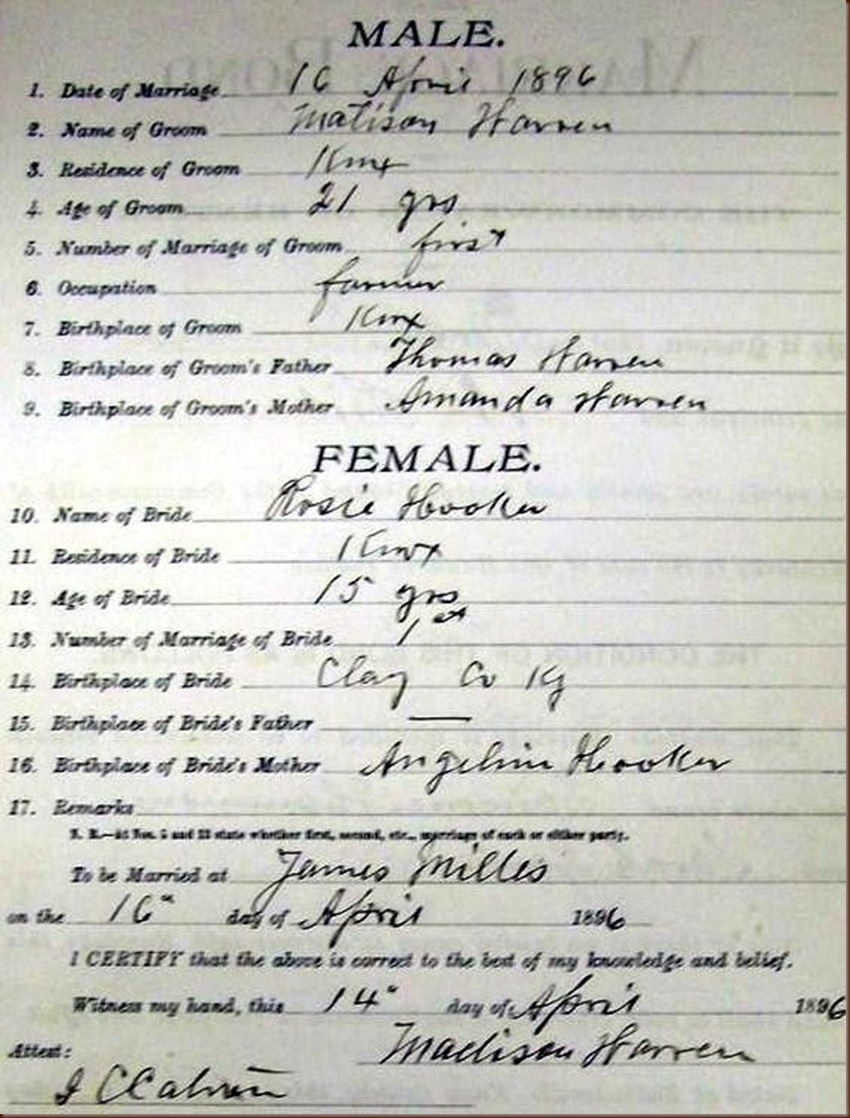 MALE.
1. Date of Marriage 16 April 1896
2. Name of Groom Matison Warren
3. Residence of Groom Knox
4. Age of Groom 21 yrs
5. Number of Marriage of Groom first
6. Occupation farmer
7. Birthplace of Groom Knox
8. Birthplace of Groom's Father Thomas Warren
9. Birthplace of Groom's Mother Amanda Warren
FEMALE.
10. Name of Bride Rosie Hooker
11. Residence of Bride Knox
12. Age of Bride 15 yrs
13. Number of Marriage of Bride 1st
14. Birthplace of Bride Clay Co Ky
15. Birthplace of Bride's Father —
16. Birthplace of Bride's Mother Angeline Hooker
17. Remarks
N. B.—At Nos. 5 and 13 state whether first, second, etc., marriage of each or either party.
To be Married at James Milles
on the 16" day of April 1896
I CERTIFY that the above is correct to the best of my knowledge and belief.
Witness my hand, this 14" day of April 1896
Attest: Madison Warren